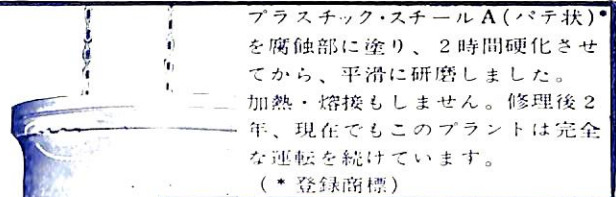 プラスチック・スチールA(パテ状)*
を腐蝕部に塗り、2時間硬化させ
てから、平滑に研磨しました。
加熱・熔接もしません。修理後2
年、現在でもこのプラントは完全
な運転を続けています。
(*登録商標)